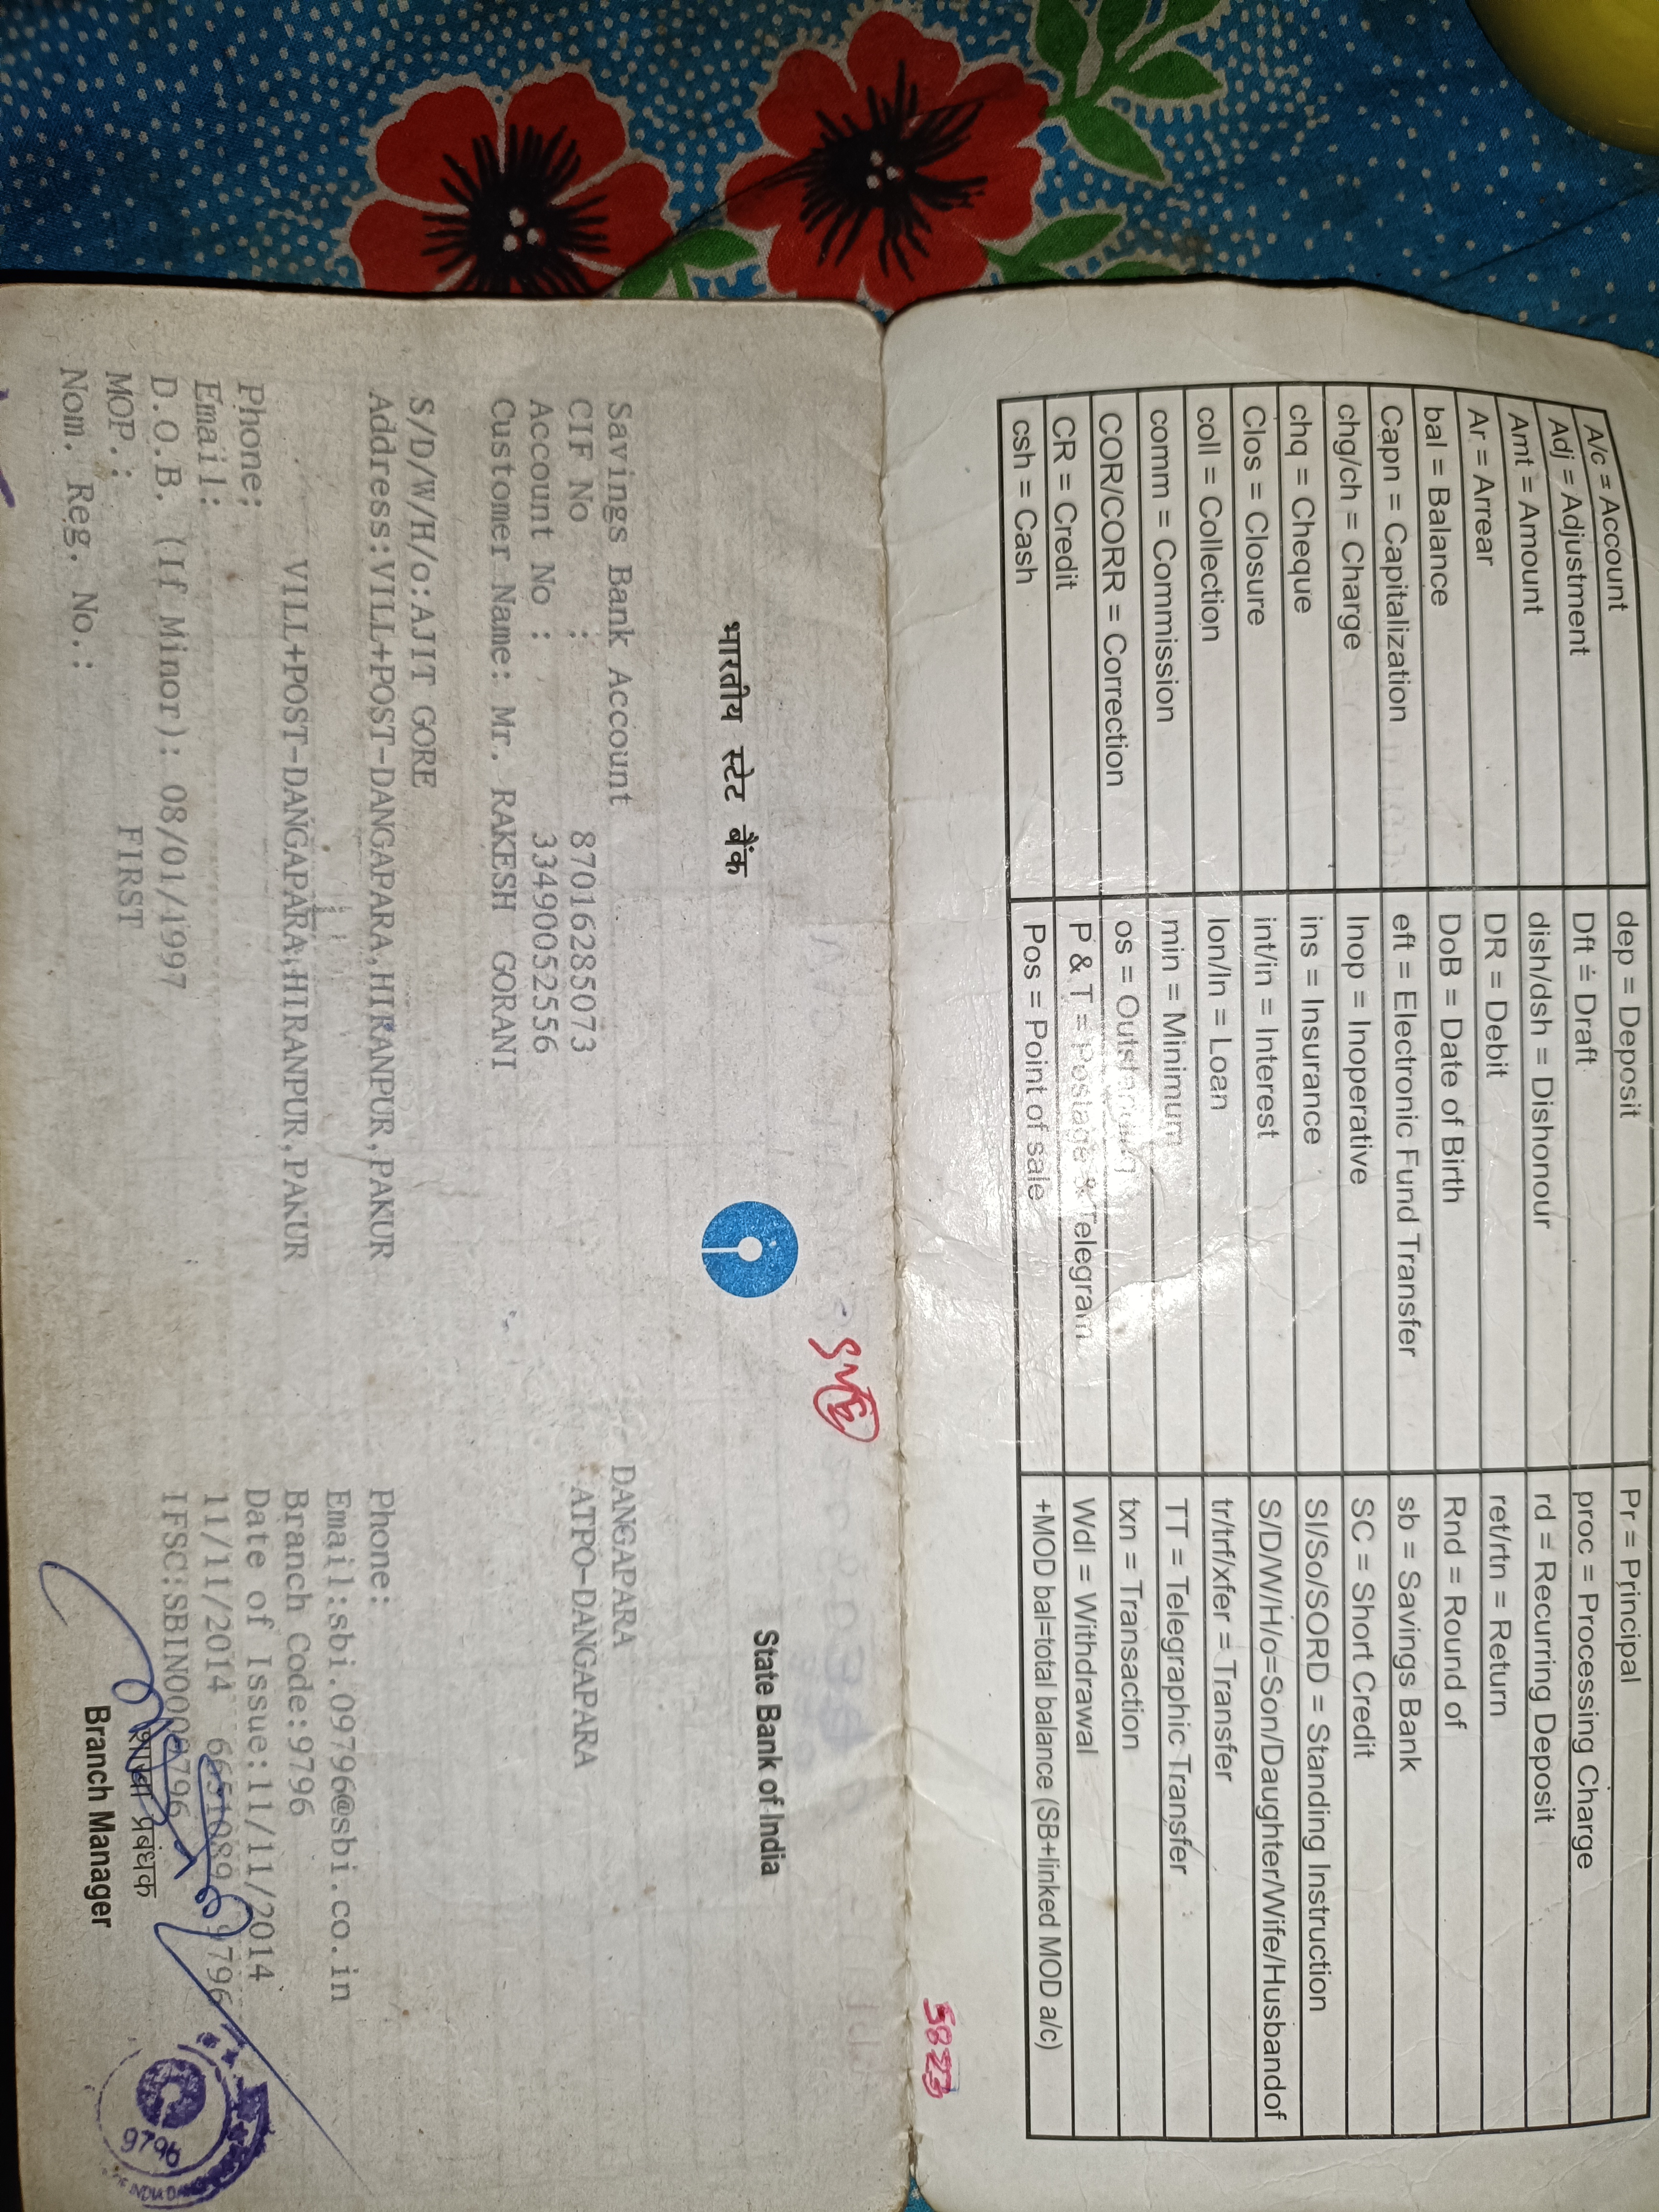 A/c = Account	dep = Deposit	Pr = Principal
Adj = Adjustment	Dft = Draft	proc = Processing Charge
Amt = Amount	dish/dsh = Dishonour	rd = Recurring Deposit
Ar = Arrear	DR = Debit	ret/rtn = Return
bal = Balance	DoB = Date of Birth	Rnd = Round of
Capn = Capitalization	eft = Electronic Fund Transfer	sb = Savings Bank
chg/ch = Charge	Inop = Inoperative	SC = Short Credit
chq = Cheque	ins = Insurance	SI/So/SORD = Standing Instruction
Clos = Closure	int/in = Interest	S/D/W/H/o=Son/Daughter/Wife/Husbandof
coll = Collection	lon/ln = Loan	tr/trf/xfer = Transfer
comm = Commission	min = Minimum	TT = Telegraphic Transfer
COR/CORR = Correction	os = Outstanding	txn = Transaction
CR = Credit	P & T = Postage & Telegram	Wdl = Withdrawal
csh = Cash	Pos = Point of sale	+MOD bal=total balance (SB+linked MOD a/c)
5823
भारतीय स्टेट बैंक	State Bank of India
Savings Bank Account	DANGAPARA
CIF No : 87016285073	ATPO-DANGAPARA
Account No : 33490052556
Customer Name: Mr. RAKESH GORANI
S/D/W/H/o:AJIT GORE
Address:VILL+POST-DANGAPARA,HIRANPUR,PAKUR	Phone:
Email:sbi.09796@sbi.co.in
VILL+POST-DANGAPARA,HIRANPUR,PAKUR	Branch Code:9796
Phone:	Date of Issue:11/11/2014
Email:	11/11/2014 9796
D.O.B. (If Minor): 08/01/1997	IFSC:SBIN0009796
MOP.: FIRST	शाखा प्रबंधक
Nom. Reg. No.:	Branch Manager
9796